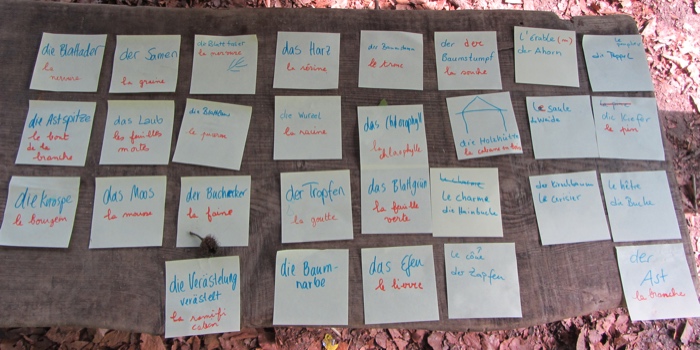 die Blattader
la
nervure
der Samen
la graine
das Harz
la résine
le tronc
der
Baumstumpf
la souche
L'érable (m)
der Ahorn
die Astspitze
le bout
de la
branche
das Laub
les feuilles
mortes
die Wurzel
la racine
das Chlorophyll
la
chlorophylle
die Holzhütte
la cabane
Le saule
die Kiefer
le pin
die Knospe
le bourgeon
das Moos
la mousse
der Tropfen
la goutte
das Blattgrün
la feuille
verte
Le charme
die Hainbuche
Le cerisier
Le hêtre
die Buche
die Verästelung
verästelt
la ramifi
cation
die Baum-
narbe
das Efeu
le lierre
Le cône
?
der Zapfen
der
Ast
la branche